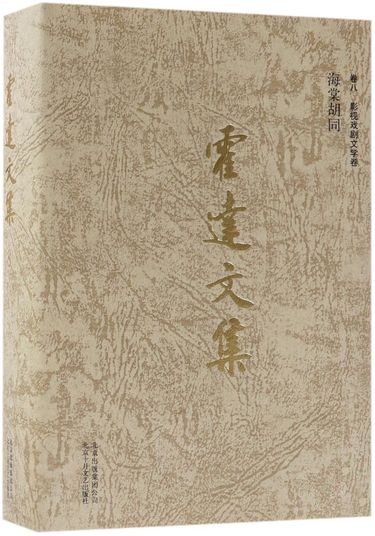 卷八 影视戏剧文学卷
海棠胡同
霍達文集
北京出版集团公司
北京十月文艺出版社
霍達文集